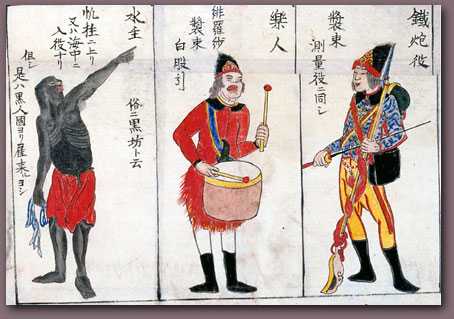 鐵炮役
裝束
測量役ニ同シ
樂人
緋羅紗
裝束
白股引
水主
帆柱ニ上リ
又ハ海中ニ
入役ナリ
俗ニ黒坊ト云
但シ
是ハ黒人國ヨリ雇来ルヨシ